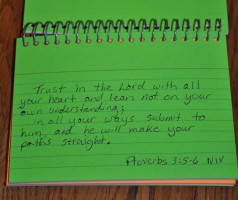 Trust in the Lord with all
your heart and lean not on your
own understanding;
in all your ways submit to
him, and he will make your
paths straight.
Proverbs 3:5-6 NIV